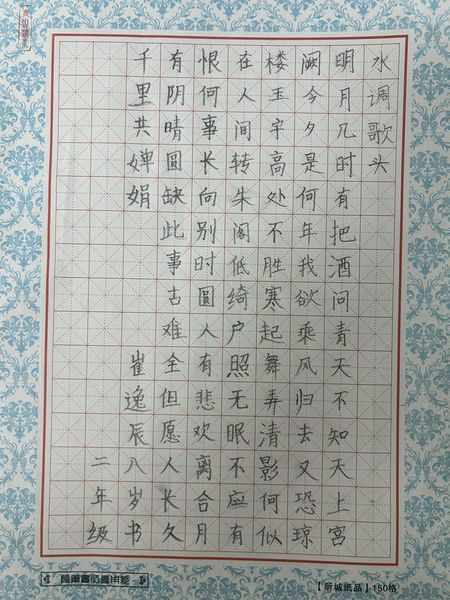 水调歌头
明月几时有把酒问青天不知天上宫
阙今夕是何年我欲乘风归去又恐琼
楼玉宇高处不胜寒起舞弄清影何似
在人间转朱阁低绮户照无眠不应有
恨何事长向别时圆人有悲欢离合月
有阴晴圆缺此事古难全但愿人长久
千里共婵娟 崔逸辰八岁书
二年级
【昕城纸品】150格